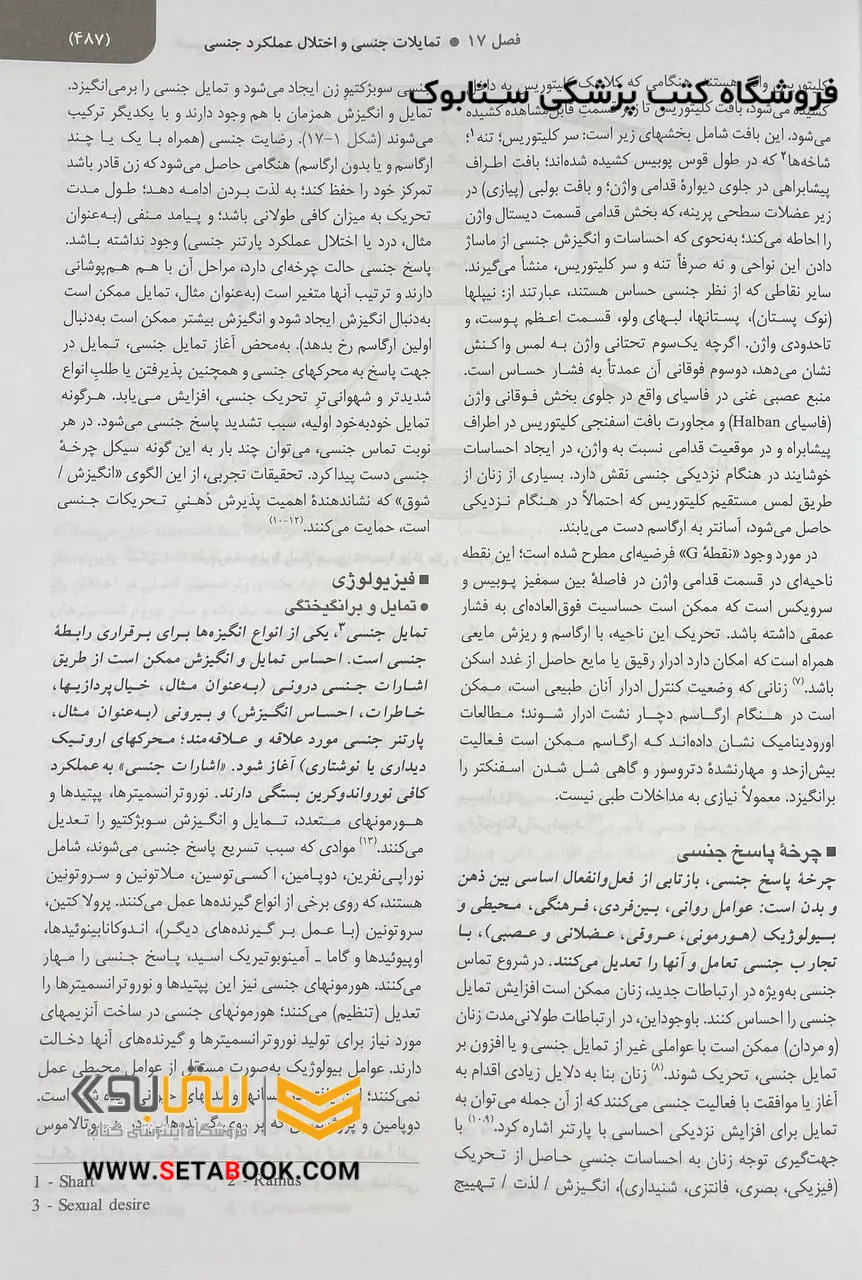 (۴۸۷)
فصل ۱۷ ● تمایلات جنسی و اختلال عملکرد جنسی
فروشگاه کتب پزشکی ستابوک
کشیده می‌شود، بافت کلیتوریس تا زیر قسمت قابل مشاهده کشیده
می‌شود. این بافت شامل بخشهای زیر است: سر کلیتوریس؛ تنه۱؛
شاخه‌ها۲ که در طول قوس پوبیس کشیده شده‌اند؛ بافت اطراف
پیشابراهی در جلوی دیوارهٔ قدامی واژن؛ و بافت بولبی (پیازی) در
زیر عضلات سطحی پرینه، که بخش قدامی قسمت دیستال واژن
را احاطه می‌کند؛ به‌نحوی که احساسات و انگیزش جنسی از ماساژ
دادن این نواحی و نه صرفاً تنه و سر کلیتوریس، منشأ می‌گیرند.
سایر نقاطی که از نظر جنسی حساس هستند، عبارتند از: نیپلها
(نوک پستان)، پستانها، لبهای ولو، قسمت اعظم پوست، و
تاحدودی واژن. اگرچه یک‌سوم تحتانی واژن به لمس واکنش
نشان می‌دهد، دوسوم فوقانی آن عمدتاً به فشار حساس است.
منبع عصبی غنی در فاسیای واقع در جلوی بخش فوقانی واژن
(فاسیای Halban) و مجاورت بافت اسفنجی کلیتوریس در اطراف
پیشابراه و در موقعیت قدامی نسبت به واژن، در ایجاد احساسات
خوشایند در هنگام نزدیکی جنسی نقش دارد. بسیاری از زنان از
طریق لمس مستقیم کلیتوریس که احتمالاً در هنگام نزدیکی
حاصل می‌شود، آسانتر به ارگاسم دست می‌یابند.
در مورد وجود «نقطهٔ G» فرضیه‌ای مطرح شده است؛ این نقطه
ناحیه‌ای در قسمت قدامی واژن در فاصلهٔ بین سمفیز پوبیس و
سرویکس است که ممکن است حساسیت فوق‌العاده‌ای به فشار
عمقی داشته باشد. تحریک این ناحیه، با ارگاسم و ریزش مایعی
همراه است که امکان دارد ادرار رقیق یا مایع حاصل از غدد اسکن
باشد.(۷) زنانی که وضعیت کنترل ادرار آنان طبیعی است، ممکن
است در هنگام ارگاسم دچار نشت ادرار شوند؛ مطالعات
اورودینامیک نشان داده‌اند که ارگاسم ممکن است فعالیت
بیش‌ازحد و مهارنشدهٔ دتروسور و گاهی شل شدن اسفنکتر را
برانگیزد. معمولاً نیازی به مداخلات طبی نیست.
■ چرخهٔ پاسخ جنسی
چرخهٔ پاسخ جنسی، بازتابی از فعل‌وانفعال اساسی بین ذهن
و بدن است: عوامل روانی، بین‌فردی، فرهنگی، محیطی و
بیولوژیک (هورمونی، عروقی، عضلانی و عصبی)، با
تجارب جنسی تعامل و آنها را تعدیل می‌کنند. در شروع تماس
جنسی به‌ویژه در ارتباطات جدید، زنان ممکن است افزایش تمایل
جنسی را احساس کنند. باوجوداین، در ارتباطات طولانی‌مدت زنان
(و مردان) ممکن است با عواملی غیر از تمایل جنسی و یا افزون بر
تمایل جنسی، تحریک شوند.(۸) زنان بنا به دلایل زیادی اقدام به
آغاز یا موافقت با فعالیت جنسی می‌کنند که از آن جمله می‌توان به
تمایل برای افزایش نزدیکی احساسی با پارتنر اشاره کرد.(۹،۱۰) با
جهت‌گیری توجه زنان به احساسات جنسی حاصل از تحریک
(فیزیکی، بصری، فانتزی، شنیداری)، انگیزش / لذت / تهییج
جنسی سوبژکتیو زن ایجاد می‌شود و تمایل جنسی را برمی‌انگیزد.
تمایل و انگیزش همزمان با هم وجود دارند و با یکدیگر ترکیب
می‌شوند (شکل ۱-۱۷). رضایت جنسی (همراه با یک یا چند
ارگاسم و یا بدون ارگاسم) هنگامی حاصل می‌شود که زن قادر باشد
تمرکز خود را حفظ کند؛ به لذت بردن ادامه دهد؛ طول مدت
تحریک به میزان کافی طولانی باشد؛ و پیامد منفی (به‌عنوان
مثال، درد یا اختلال عملکرد پارتنر جنسی) وجود نداشته باشد.
پاسخ جنسی حالت چرخه‌ای دارد، مراحل آن با هم همپوشانی
دارند و ترتیب آنها متغیر است (به‌عنوان مثال، تمایل ممکن است
به‌دنبال انگیزش ایجاد شود و انگیزش بیشتر ممکن است به‌دنبال
اولین ارگاسم رخ بدهد). به‌محض آغاز تمایل جنسی، تمایل در
جهت پاسخ به محرکهای جنسی و همچنین پذیرفتن یا طلب انواع
شدیدتر و شهوانی‌تر تحریک جنسی، افزایش می‌یابد. هرگونه
تمایل خودبه‌خود اولیه، سبب تشدید پاسخ جنسی می‌شود. در هر
نوبت تماس جنسی، می‌توان چند بار به این گونه سیکل چرخهٔ
جنسی دست پیدا کرد. تحقیقات تجربی، از این الگوی «انگیزش /
شوق» که نشاندهندهٔ اهمیت پذیرش ذهنیِ تحریکات جنسی
است، حمایت می‌کنند.(۱۲-۱۰)
■ فیزیولوژی
● تمایل و برانگیختگی
تمایل جنسی۳، یکی از انواع انگیزه‌ها برای برقراری رابطهٔ
جنسی است. احساس تمایل و انگیزش ممکن است از طریق
اشارات جنسی درونی (به‌عنوان مثال، خیال‌پردازیها،
خاطرات، احساس انگیزش) و بیرونی (به‌عنوان مثال،
پارتنر جنسی مورد علاقه و علاقه‌مند؛ محرکهای اروتیک
دیداری یا نوشتاری) آغاز شود. «اشارات جنسی» به عملکرد
کافی نورواندوکرین بستگی دارند. نوروترانسمیترها، پپتیدها و
هورمونهای متعدد، تمایل و انگیزش سوبژکتیو را تعدیل
می‌کنند.(۱۳) موادی که سبب تسریع پاسخ جنسی می‌شوند، شامل
نوراپی‌نفرین، دوپامین، اکسی‌توسین، ملاتونین و سروتونین
هستند، که روی برخی از انواع گیرنده‌ها عمل می‌کنند. پرولاکتین،
سروتونین (با عمل بر گیرنده‌های دیگر)، اندوکانابینوئیدها،
اوپیوئیدها و گاما ـ آمینوبوتیریک اسید، پاسخ جنسی را مهار
می‌کنند. هورمونهای جنسی نیز این پپتیدها و نوروترانسمیترها را
تعدیل (تنظیم) می‌کنند؛ هورمونهای جنسی در ساخت آنزیمهای
مورد نیاز برای تولید نوروترانسمیترها و گیرنده‌های آنها دخالت
دارند. عوامل بیولوژیک به‌صورت مستقل از عوامل محیطی عمل
نمی‌کنند؛
دوپامین و
ستابوک
فروشگاه اینترنتی کتاب
WWW.SETABOOK.COM
1 - Shaft
2 - Ramus
3 - Sexual desire